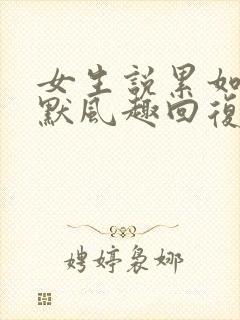 女生說累如
默風趣回復
娉婷裊娜